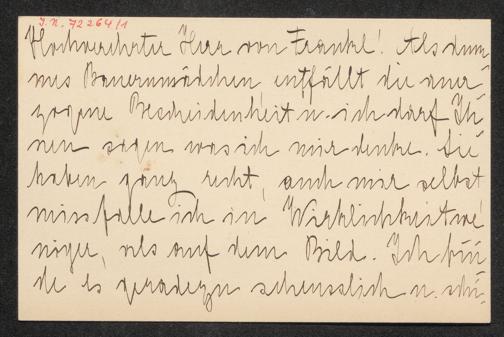 I.N. 72264/1
Hochverehrter Herr von Frankl! Als dum-
mes Bauernmädchen entfällt die aner-
zogene Bescheidenheit u. ich darf Ih-
nen sagen was ich mir denke. Sie
haben ganz recht, auch mir selbst
missfalle ich in Wirklichkeit we-
niger, als auf dem Bild. Ich fin-
de es geradezu scheusslich u. schi-